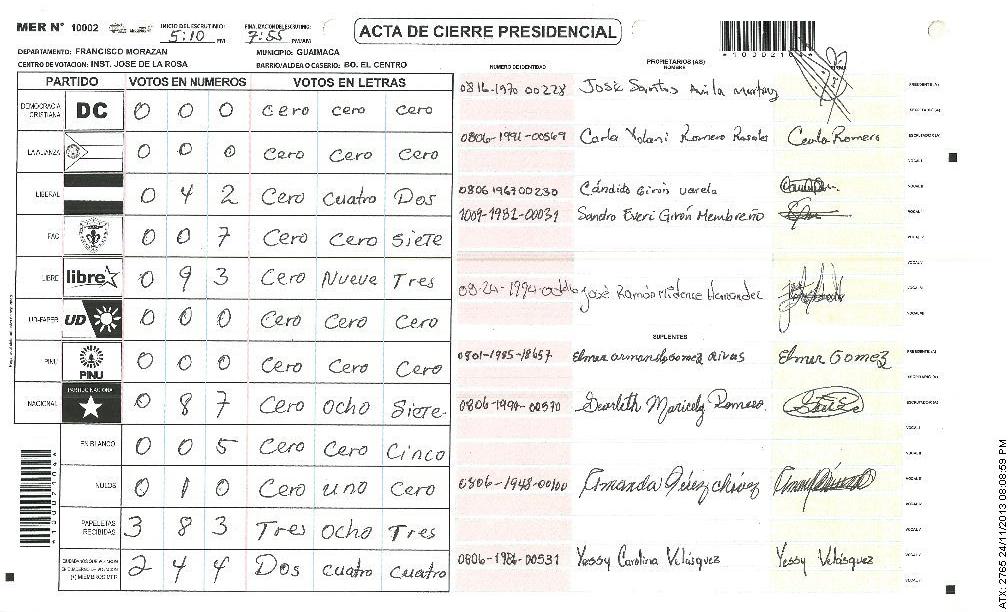 MER N° 10002 INICIO DEL ESCRUTINIO: 5:10 PM FINALIZACION DEL ESCRUTINIO: 7:55 PM/AM ACTA DE CIERRE PRESIDENCIAL
DEPARTAMENTO: FRANCISCO MORAZAN MUNICIPIO: GUAIMACA
CENTRO DE VOTACION: INST. JOSE DE LA ROSA BARRIO/ALDEA O CASERIO: BO. EL CENTRO
PARTIDO VOTOS EN NUMEROS VOTOS EN LETRAS
DEMOCRACIA CRISTIANA DC 0 0 0 Cero cero cero
LA ALIANZA 0 0 0 Cero Cero cero
LIBERAL 0 4 2 Cero cuatro Dos
PAC 0 0 7 Cero Cero Siete
LIBRE libre 0 9 3 Cero Nueve Tres
UD-FAPER UD 0 0 0 Cero Cero Cero
PINU PINU 0 0 0 Cero Cero Cero
NACIONAL PARTIDO NACIONAL 0 8 7 Cero ocho Siete
EN BLANCO 0 0 5 Cero Cero Cinco
NULOS 0 1 0 Cero uno Cero
PAPELETAS RECIBIDAS 3 8 3 Tres ocho Tres
2 4 4 Dos cuatro cuatro
NUMERO DE IDENTIDAD PROPIETARIOS (AS)
NOMBRE
0816-1970 00228 José Santos Avila PRESIDENTE (A)
SECRETARIO (A)
0806-1991-00569 Carla Yolani Romero Rosales Carla Romero ESCRUTADOR (A)
VOCAL I
0806 1967 00230 Cándido Girón Varela VOCAL II
1009-1981-00031 Sandro Everi Girón Membreño
José Ramón Midence Hernandez
SUPLENTES
0801-1985-18657 Elmer armando Gomez rivas Elmer Gomez PRESIDENTE (A)
SECRETARIO (A)
0806-1990-00570 Scarleth Maricela Romero. ESCRUTADOR (A)
0806-1948-00100 Amanda Pérez chávez
0806-1986-00531 Yessy Carolina Velásquez Yessy Velásquez
*10002104*
ATX: 2765 24/11/2013 08:08:59 PM